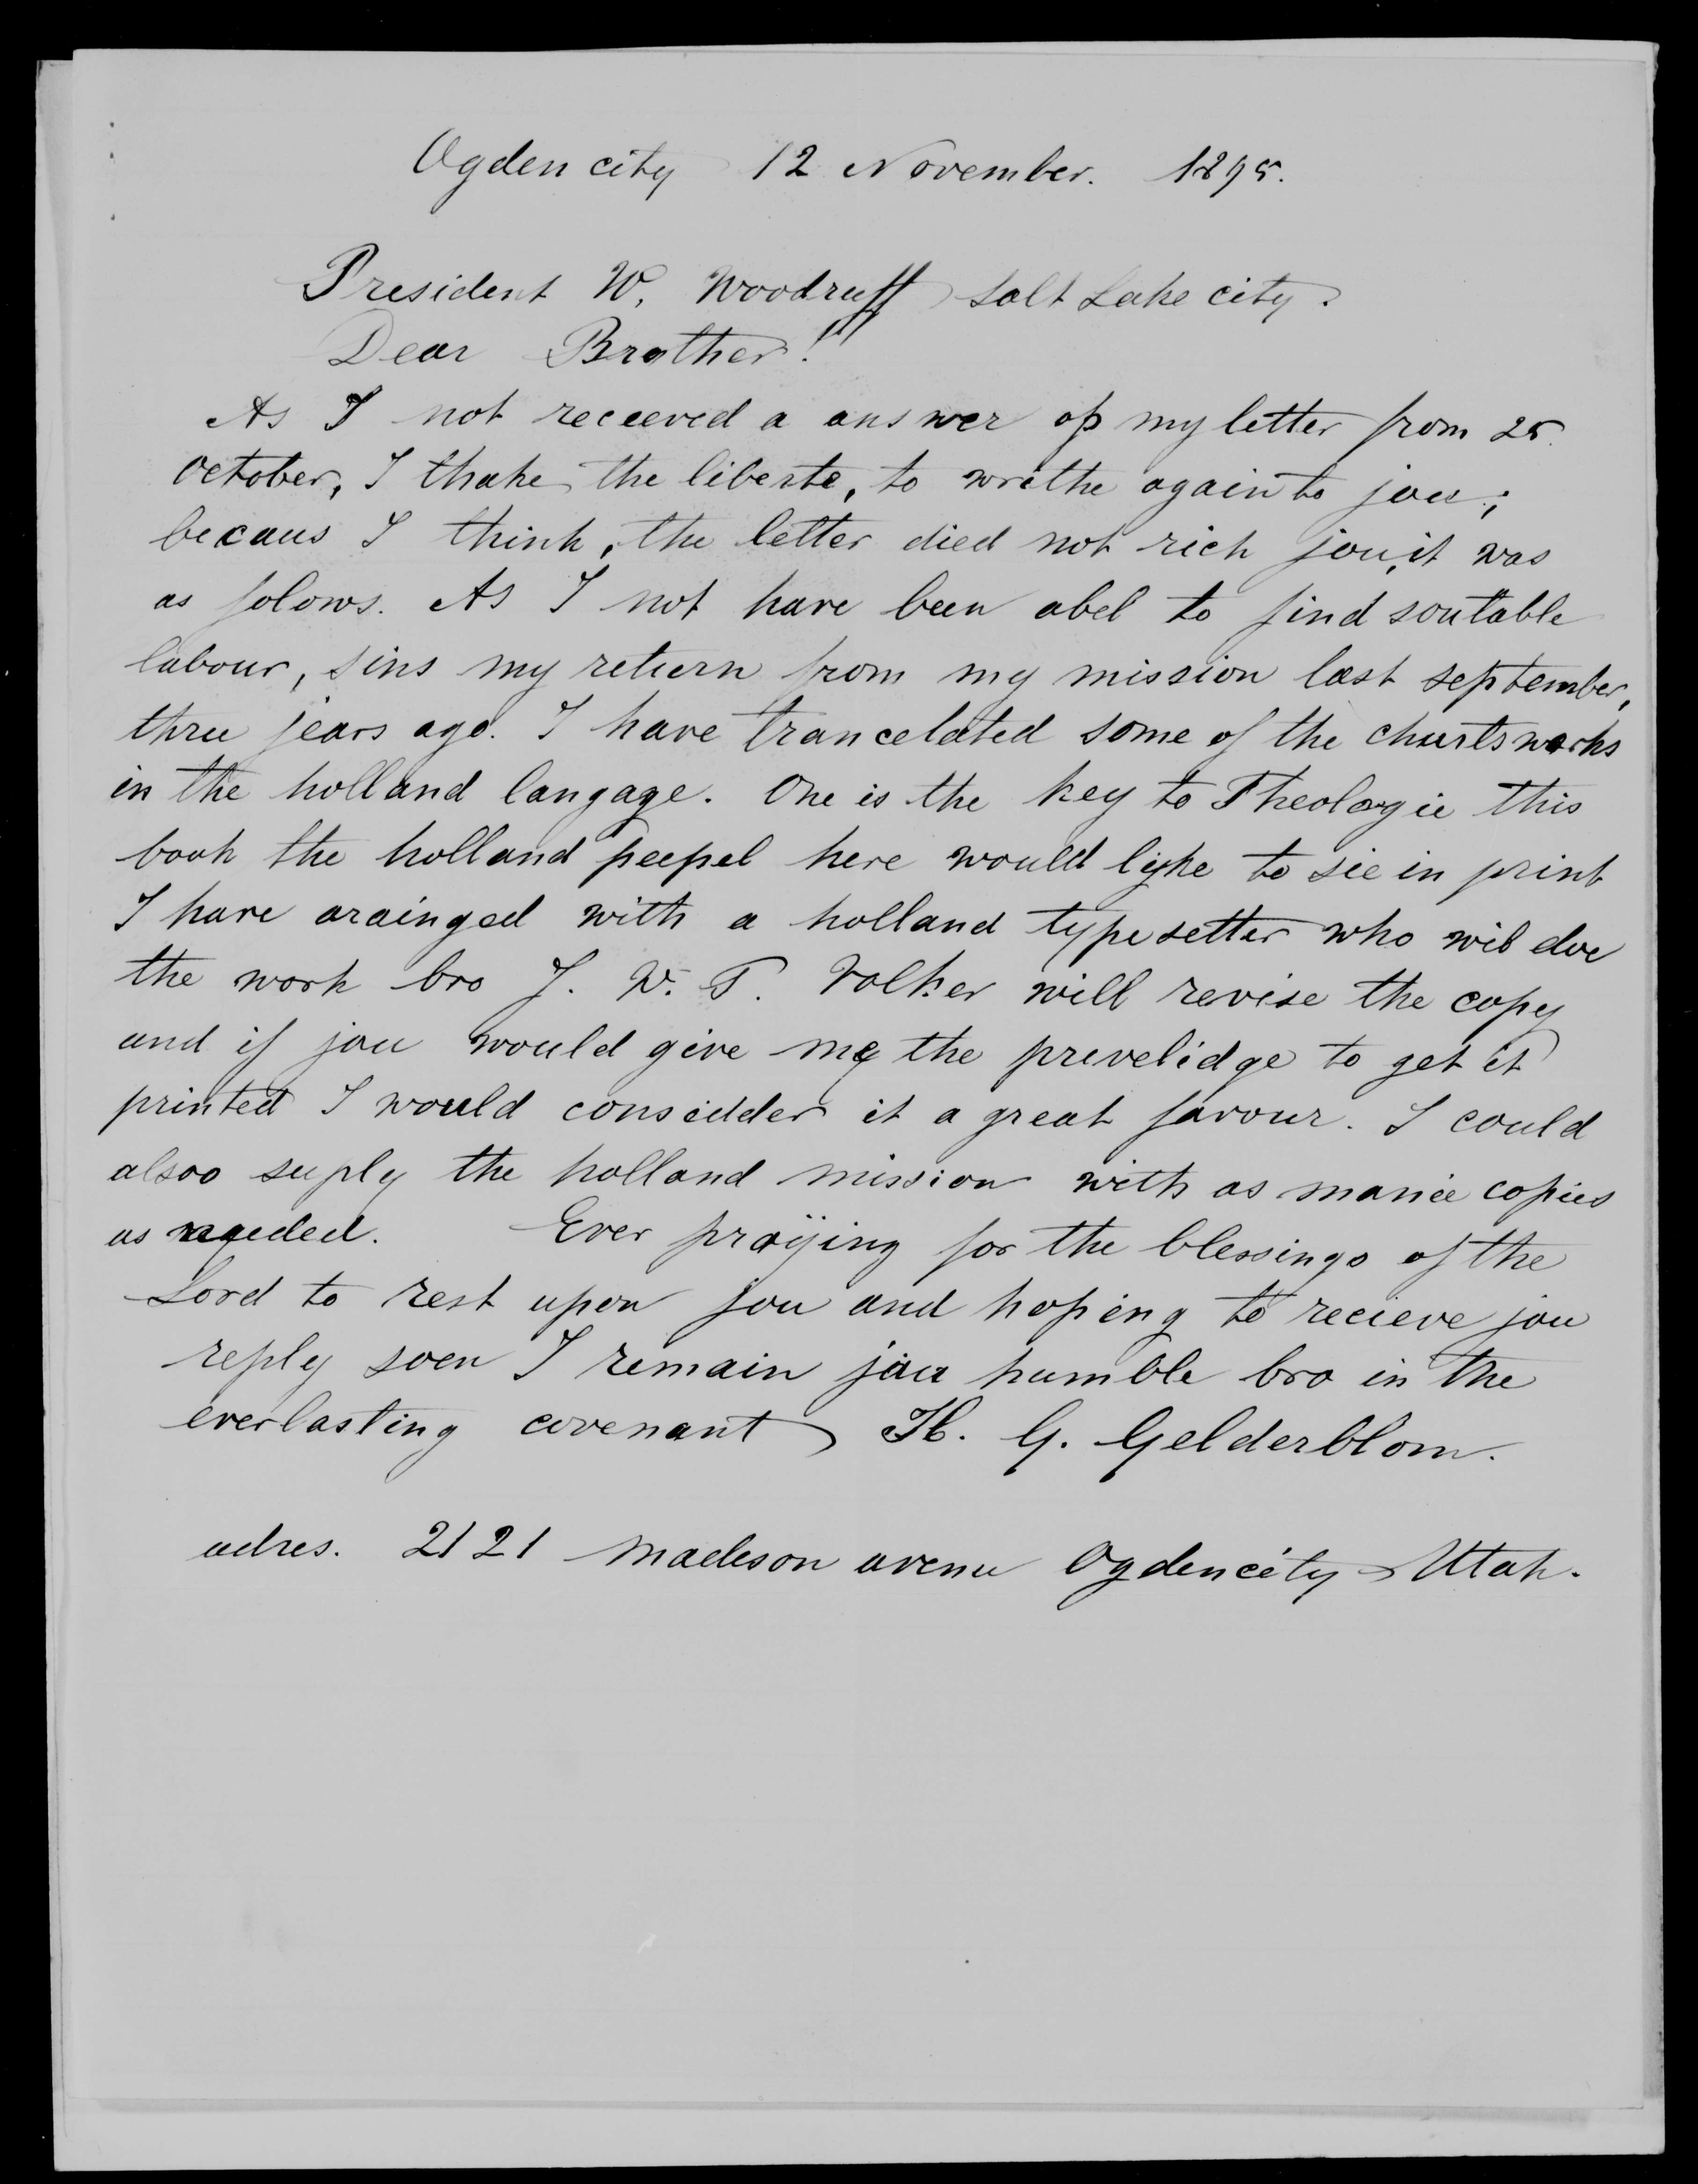 Ogden city 12 November. 1895.
President W. Woodruff Salt Lake city.
Dear Brother!
As I not receeved a answer op my letter from 25.
October, I thake the liberte, to writhe again to jou;
becaus I think, the letter died not rich jou, it was
as folows. As I not have been abel to find soutable
labour, sins my return from my mission last september,
thre jears ago. I have trancelated some of the churts works
in the holland langage. One is the key to Theologie this
book the holland peepel here would lyke to sie in print
I have arainged with a holland typesetter who wil doe
the work bro J. W. F. Volker will revise the copy
and if jou would give me the previlidge to get it
printed I would considder it a great favour. I could
alsoo suply the holland mission with as manie copies
as needed. Ever praijing for the blessings of the
Lord to rest upon jou and hoping to recieve jou
reply soen I remain jou humble bro in the
everlasting covenant H. G. Gelderblom.
adres. 2121 Madison avenu Ogdencity Utah.